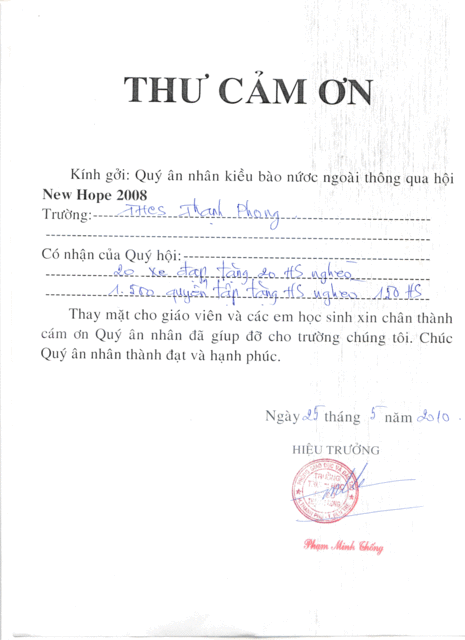 THƯ CẢM ƠN
Kính gởi: Quý ân nhân kiều bào nước ngoài thông qua hội
New Hope 2008
Trường: THCS Thạnh Phong
Có nhận của Quý hội:
20 xe đạp tặng 20 HS nghèo
1.500 quyển tập tặng HS nghèo 150 HS
Thay mặt cho giáo viên và các em học sinh xin chân thành
cám ơn Quý ân nhân đã gíup đỡ cho trường chúng tôi. Chúc
Quý ân nhân thành đạt và hạnh phúc.
Ngày 25 tháng 5 năm 2010.
HIỆU TRƯỞNG
TRƯỜNG
Phạm Minh Chống